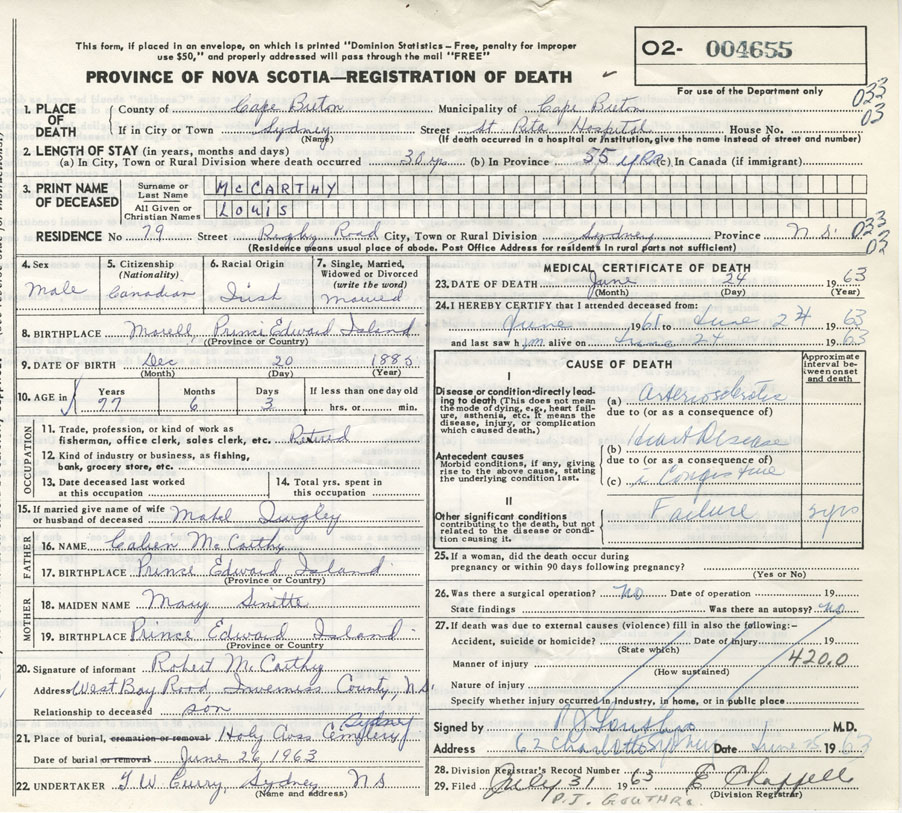 This form, if placed in an envelope, on which is printed "Dominion Statistics – Free, penalty for improper
use $50," and properly addressed will pass through the mail "FREE"
O2- 004655
PROVINCE OF NOVA SCOTIA—REGISTRATION OF DEATH
For use of the Department only
033
03
1. PLACE OF DEATH
County of Cape Breton Municipality of Cape Breton
If in City or Town Sydney Street St Rita Hospital House No.
(Name) (If death occurred in a hospital or institution, give the name instead of street and number)
2. LENGTH OF STAY (in years, months and days)
(a) In City, Town or Rural Division where death occurred 30 yrs (b) In Province 55 yrs (c) In Canada (if immigrant)
3. PRINT NAME OF DECEASED
Surname or Last Name McCARTHY
All Given or Christian Names LOUIS
RESIDENCE No 79 Street Rugby Road City, Town or Rural Division Sydney Province N.S. 033
03
(Residence means usual place of abode. Post Office Address for residents in rural parts not sufficient)
4. Sex
Male
5. Citizenship (Nationality)
Canadian
6. Racial Origin
Irish
7. Single, Married, Widowed or Divorced (write the word)
Married
8. BIRTHPLACE Morell, Prince Edward Island
(Province or Country)
9. DATE OF BIRTH Dec 20 1885
(Month) (Day) (Year)
10. AGE in Years 77 Months 6 Days 3 If less than one day old
hrs. or min.
OCCUPATION
11. Trade, profession, or kind of work as
fisherman, office clerk, sales clerk, etc. Retired
12. Kind of industry or business, as fishing,
bank, grocery store, etc.
13. Date deceased last worked
at this occupation
14. Total yrs. spent in
this occupation
15. If married give name of wife
or husband of deceased Mabel Quigley
FATHER
16. NAME McCarthy
17. BIRTHPLACE Prince Edward Island
(Province or Country)
MOTHER
18. MAIDEN NAME Mary Sinette
19. BIRTHPLACE Prince Edward Island
(Province or Country)
20. Signature of informant Robert McCarthy
Address West Bay Road Inverness County, N.S.
Relationship to deceased son
21. Place of burial, cremation or removal Holy Cross Cemetery Sydney
Date of burial or removal June 26, 1963
22. UNDERTAKER T W Curry, Sydney NS
(Name and address)
MEDICAL CERTIFICATE OF DEATH
23. DATE OF DEATH June 24 1963
(Month) (Day) (Year)
24. I HEREBY CERTIFY that I attended deceased from:
June 1961 to June 24 1963
and last saw him alive on June 24 1963
CAUSE OF DEATH
Approximate interval between onset and death
I
Disease or condition directly leading to death (This does not mean the mode of dying, e.g., heart failure, asthenia, etc. It means the disease, injury, or complication which caused death.)
(a) Arteriosclerotic
due to (or as a consequence of)
Antecedent causes
Morbid conditions, if any, giving rise to the above cause, stating the underlying condition last.
(b) Heart Disease
due to (or as a consequence of)
(c) c Congestive
II
Other significant conditions
contributing to the death, but not related to the disease or condition causing it.
Failure
yrs
25. If a woman, did the death occur during
pregnancy or within 90 days following pregnancy?
(Yes or No)
26. Was there a surgical operation? No Date of operation 19
State findings Was there an autopsy? No
27. If death was due to external causes (violence) fill in also the following:–
Accident, suicide or homicide? Date of injury 19
(State which)
Manner of injury 420.0
(How sustained)
Nature of injury
Specify whether injury occurred in industry, in home, or in public place
Signed by M.D.
Address 62 Charlotte St Date June 25 1963
28. Division Registrar's Record Number
29. Filed July 31 1963 E Chappell
(Division Registrar)
P.J. GOUTHRO.